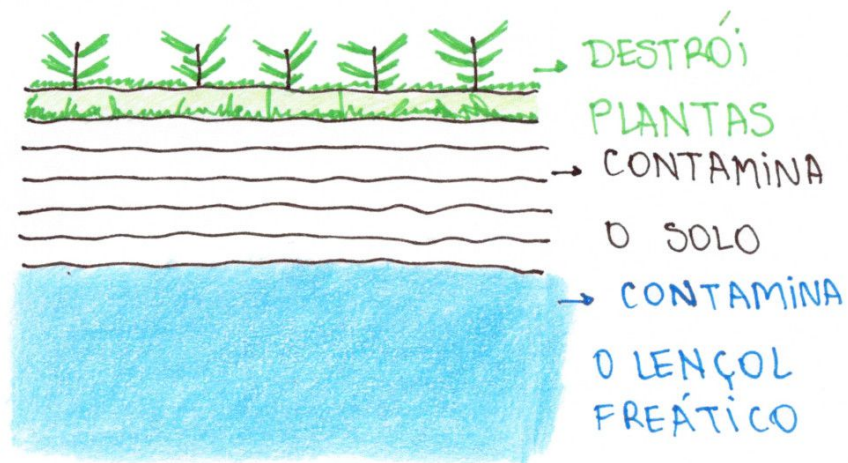 DESTRÓI
PLANTAS
CONTAMINA
O SOLO
CONTAMINA
O LENÇOL
FREÁTICO